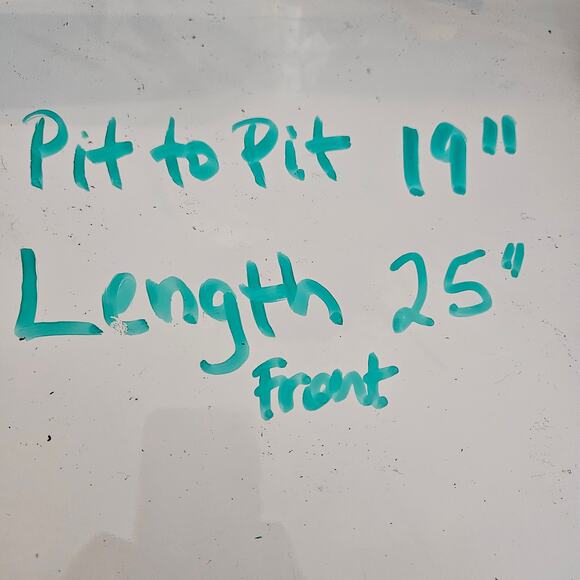 Pit to Pit 19"
Length 25"
Front